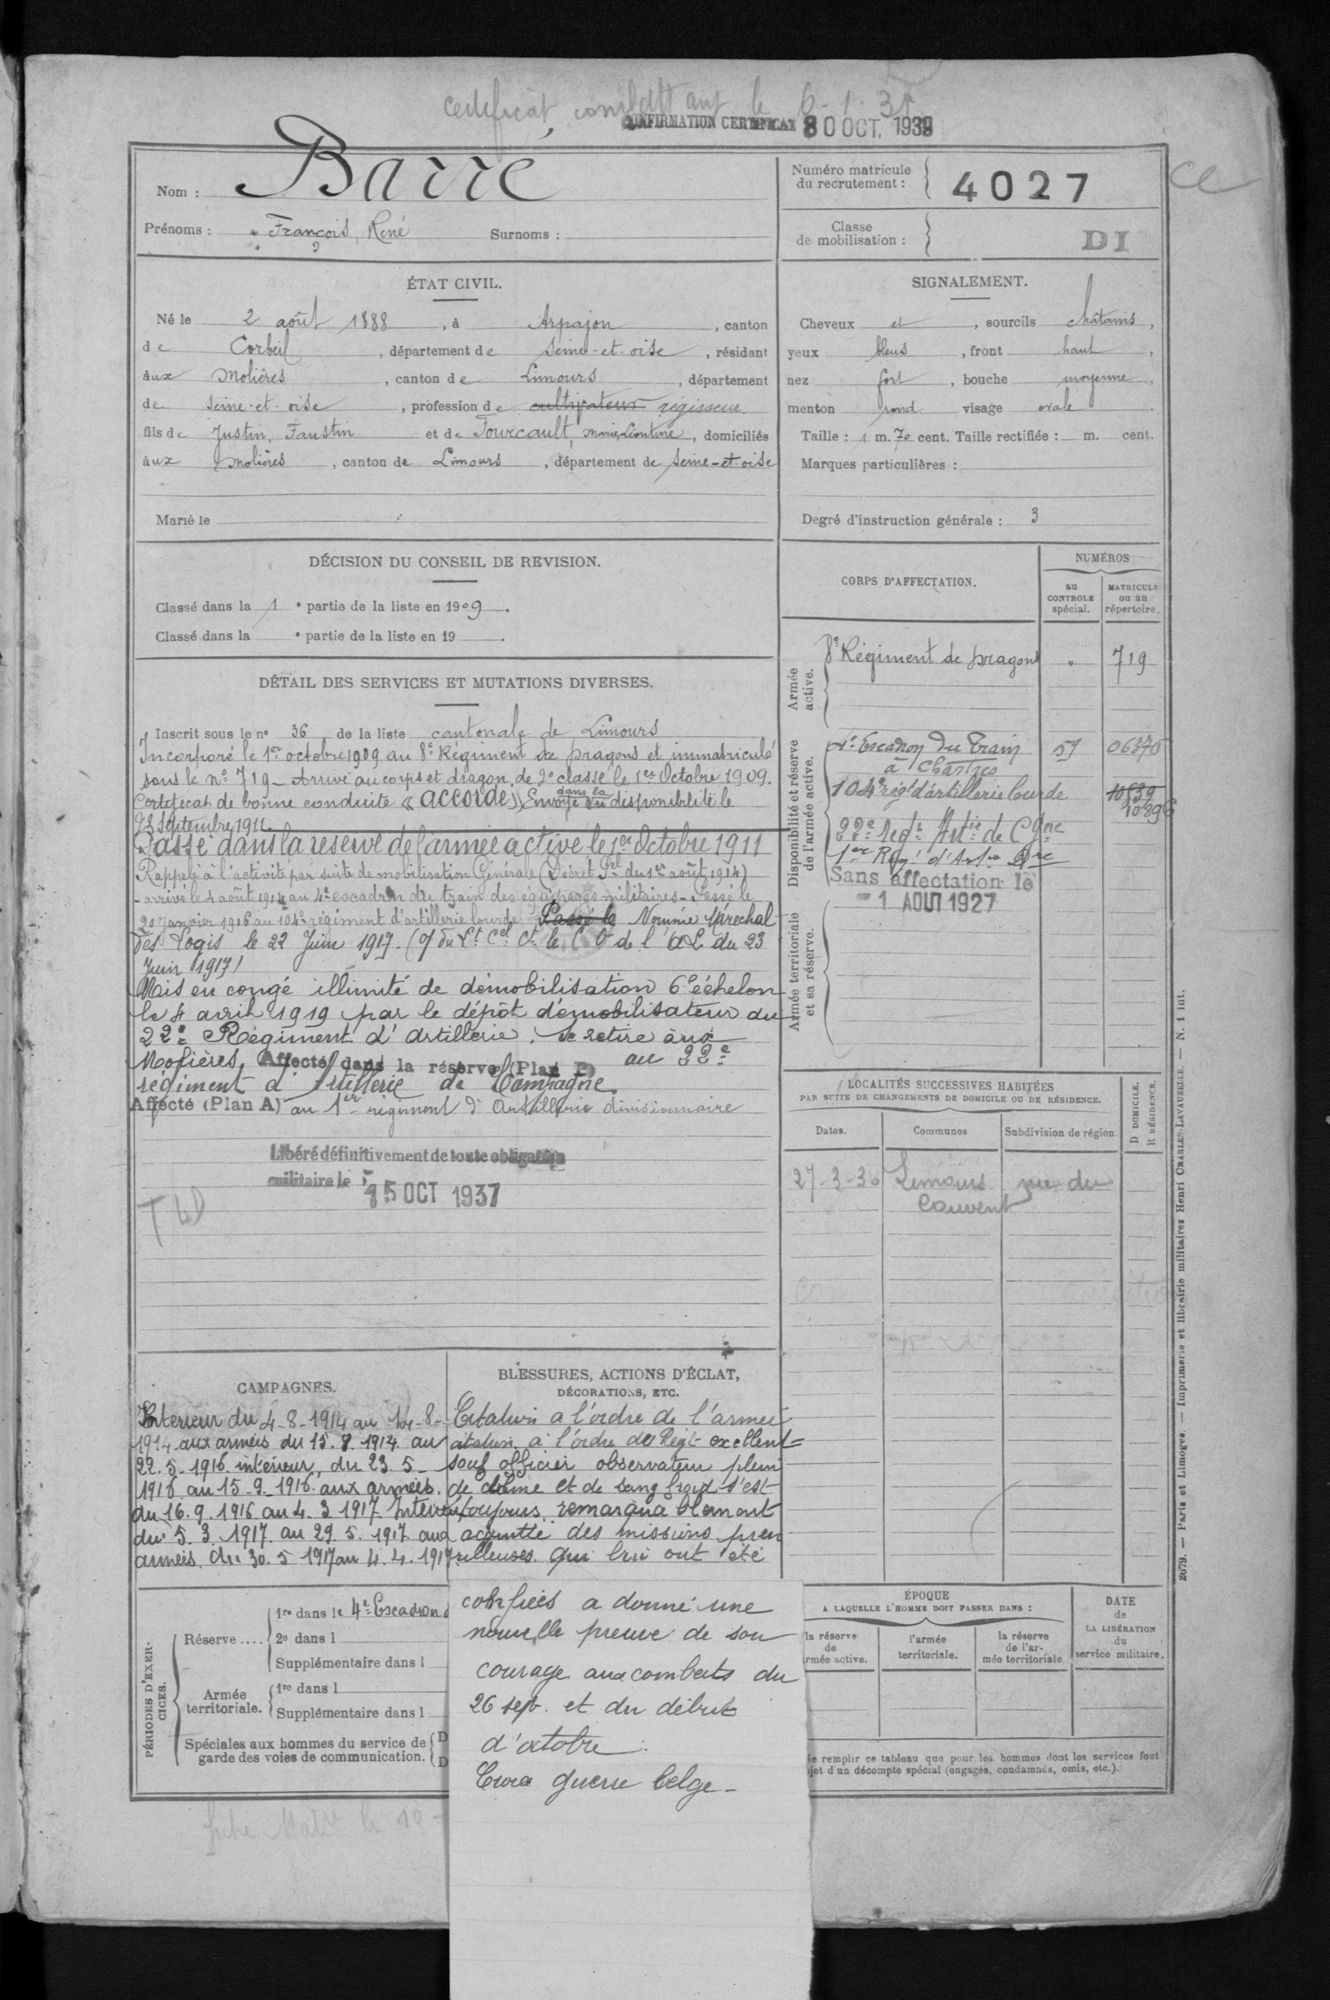 certificat combattant le 6-1-31
CONFIRMATION CERTIFICAT 30 OCT. 1939
Nom : Barré
Prénoms : François, René Surnoms :
Numéro matricule du recrutement : 4027
ce
Classe de mobilisation : DI
ÉTAT CIVIL.
Né le 2 août 1888, à Arpajon, canton
de Corbeil, département de Seine-et-oise, résidant
aux Molières, canton de Limours, département
de Seine-et-oise, profession de cultivateur régisseur
fils de Justin, Faustin et de Fourcault, Marie Léontine, domiciliés
aux Molières, canton de Limours, département de Seine-et-oise
Marié le
SIGNALEMENT.
Cheveux et, sourcils châtains,
yeux bleus, front haut,
nez fort, bouche moyenne,
menton rond visage ovale.
Taille : 1 m. 70 cent. Taille rectifiée : m. cent.
Marques particulières :
Degré d'instruction générale : 3
DÉCISION DU CONSEIL DE REVISION.
Classé dans la 1e partie de la liste en 1909.
Classé dans la e partie de la liste en 19 .
DÉTAIL DES SERVICES ET MUTATIONS DIVERSES.
Inscrit sous le no 36 de la liste cantonale de Limours
Incorporé le 1er octobre 1909 au 8e Régiment de Dragons et immatriculé
sous le no 719 - Arrivé au corps et dragon de 2e classe le 1er Octobre 1909.
Certificat de bonne conduite « accordé » Envoyé en dans la disponibilité le
23 Septembre 1911.
Passé dans la réserve de l'armée active le 1er Octobre 1911
Rappelé à l'activité par suite de mobilisation Générale (Décret Pel du 1er août 1914)
- arrivé le 4 août 1914 au 4e escadron du train des équipages militaires - Passé le
20 janvier 1916 au 104e régiment d'artillerie lourde Passé le Nommé Maréchal
des Logis le 22 Juin 1917. (O/ du Lt Cel Ct le C O de l'AL du 23
Juin 1917)
Mis en congé illimité de démobilisation 6e échelon
le 4 avril 1919 par le dépôt démobilisateur du
22e Régiment d'Artillerie. Se retire aux
Molières. Affecté dans la réserve (Plan P) au 22e
régiment d'Artillerie de Campagne.
Affecté (Plan A) au 1er régiment d'artillerie divisionnaire
Libéré définitivement de toute obligation
militaire le 15 OCT 1937
CORPS D'AFFECTATION.
NUMÉROS
au CONTROLE spécial.
MATRICULE ou au répertoire.
Armée active.
8e Régiment de Dragons " 719
Disponibilité et réserve de l'armée active.
4e Escadron du Train 51 06376
à Chartres
104e régt d'artillerie lourde 10539
10896
22e Regt Artie de Cgne
1er Reg' d'Artie Dre
Sans affectation le
1 AOUT 1927
Armée territoriale et sa réserve.
LOCALITÉS SUCCESSIVES HABITÉES
PAR SUITE DE CHANGEMENTS DE DOMICILE OU DE RÉSIDENCE.
D DOMICILE.
R RÉSIDENCE.
Dates. Communes Subdivision de région.
27-3-30 Limours rue du
Couvent
CAMPAGNES.
Intérieur du 4-8-1914 au 14-8-
1914 aux armées du 15.8.1914 au
22.5-1916. intérieur, du 23.5-
1916 au 15-9-1916. aux armées.
du 16.9.1916 au 4.3.1917 Intérieur
du 5.3.1917. au 29.5.1917 aux
armées. du 30.5 1917 au 4.4.191
BLESSURES, ACTIONS D'ÉCLAT,
DÉCORATIONS, ETC.
Citation a l'ordre de l'armée
citation à l'ordre du Regt excellent=
sous officier observateur plein
de calme et de sang froid s'est
toujours remarqua
acquitté des missions
rilleuses. qui lui ont été
confiées a donné une
nouvelle preuve de son
courage aux combats du
26 sept. et du début
d'octobre.
Croix guerre belge -
PÉRIODES D'EXERCICES.
Réserve .... 1re dans le 4e Escadron d
2e dans l
Supplémentaire dans l
Armée territoriale. 1re dans l
Supplémentaire dans l
Spéciales aux hommes du service de garde des voies de communication. D D
ÉPOQUE
A LAQUELLE L'HOMME DOIT PASSER DANS :
la réserve de rmée active.
l'armée territoriale.
la réserve de l'armée territoriale
DATE de LA LIBÉRATION du service militaire.
le remplir ce tableau que pour les hommes dont les services font
jet d'un décompte spécial (engagés, condamnés, omis, etc.).
2679. — Paris et Limoges. — Imprimerie et librairie militaires Henri CHARLES-LAVAUZELLE. — N. 1 int.